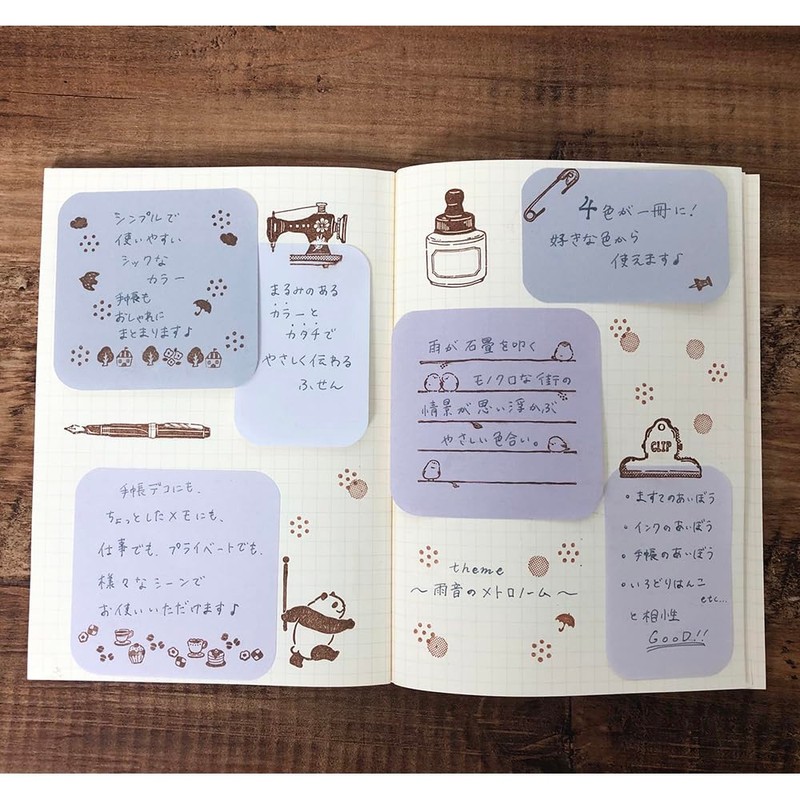 シンプルで
使いやすい
シックな
カラー
手帳も
おしゃれに
まとまります♪
まるみのある
カラーと
カタチで
やさしく伝わる
ふせん
手帳デコにも、
ちょっとしたメモにも、
仕事でも、プライベートでも、
様々なシーンで
お使いいただけます♪
4色が一冊に!
好きな色から
使えます♪
雨が石畳を叩く
モノクロな街の
情景が思い浮かぶ
やさしい色合い。
CLIP
・ますてのあいぼう
・インクのあいぼう
・手帳のあいぼう
・いろどりはんこ
etc...
と相性
GooD!!
theme
〜雨音のメトロノーム〜